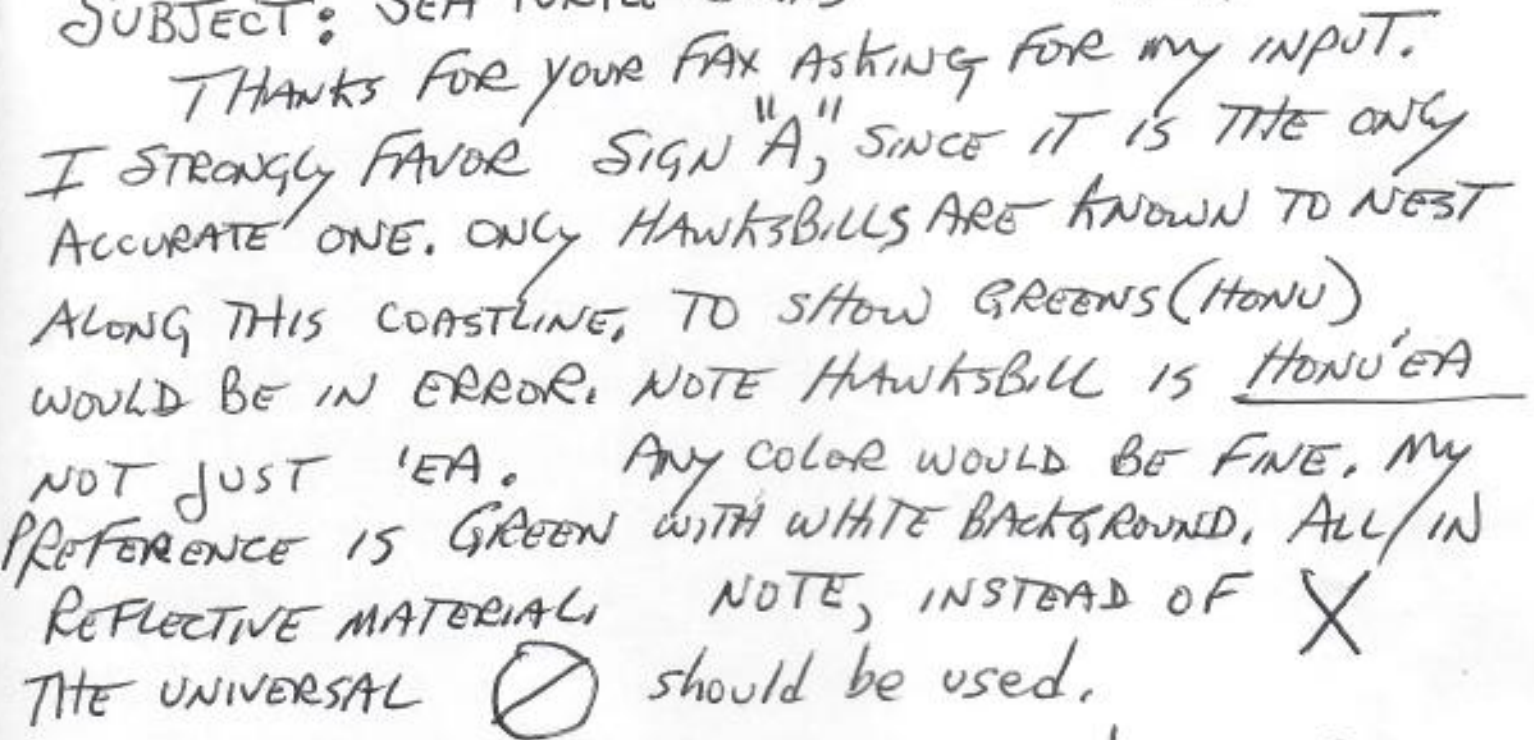 SUBJECT: SEA TURTLE
THANKS FOR YOUR FAX ASKING FOR MY INPUT.
I STRONGLY FAVOR SIGN "A," SINCE IT IS THE ONLY
ACCURATE ONE. ONLY HAWKSBILLS ARE KNOWN TO NEST
ALONG THIS COASTLINE. TO SHOW GREENS (HONU)
WOULD BE IN ERROR. NOTE HAWKSBILL IS HONU'EA
NOT JUST 'EA. ANY COLOR WOULD BE FINE. MY
PREFERENCE IS GREEN WITH WHITE BACKGROUND. ALL IN
REFLECTIVE MATERIAL. NOTE, INSTEAD OF X
THE UNIVERSAL ⊘ should be used.